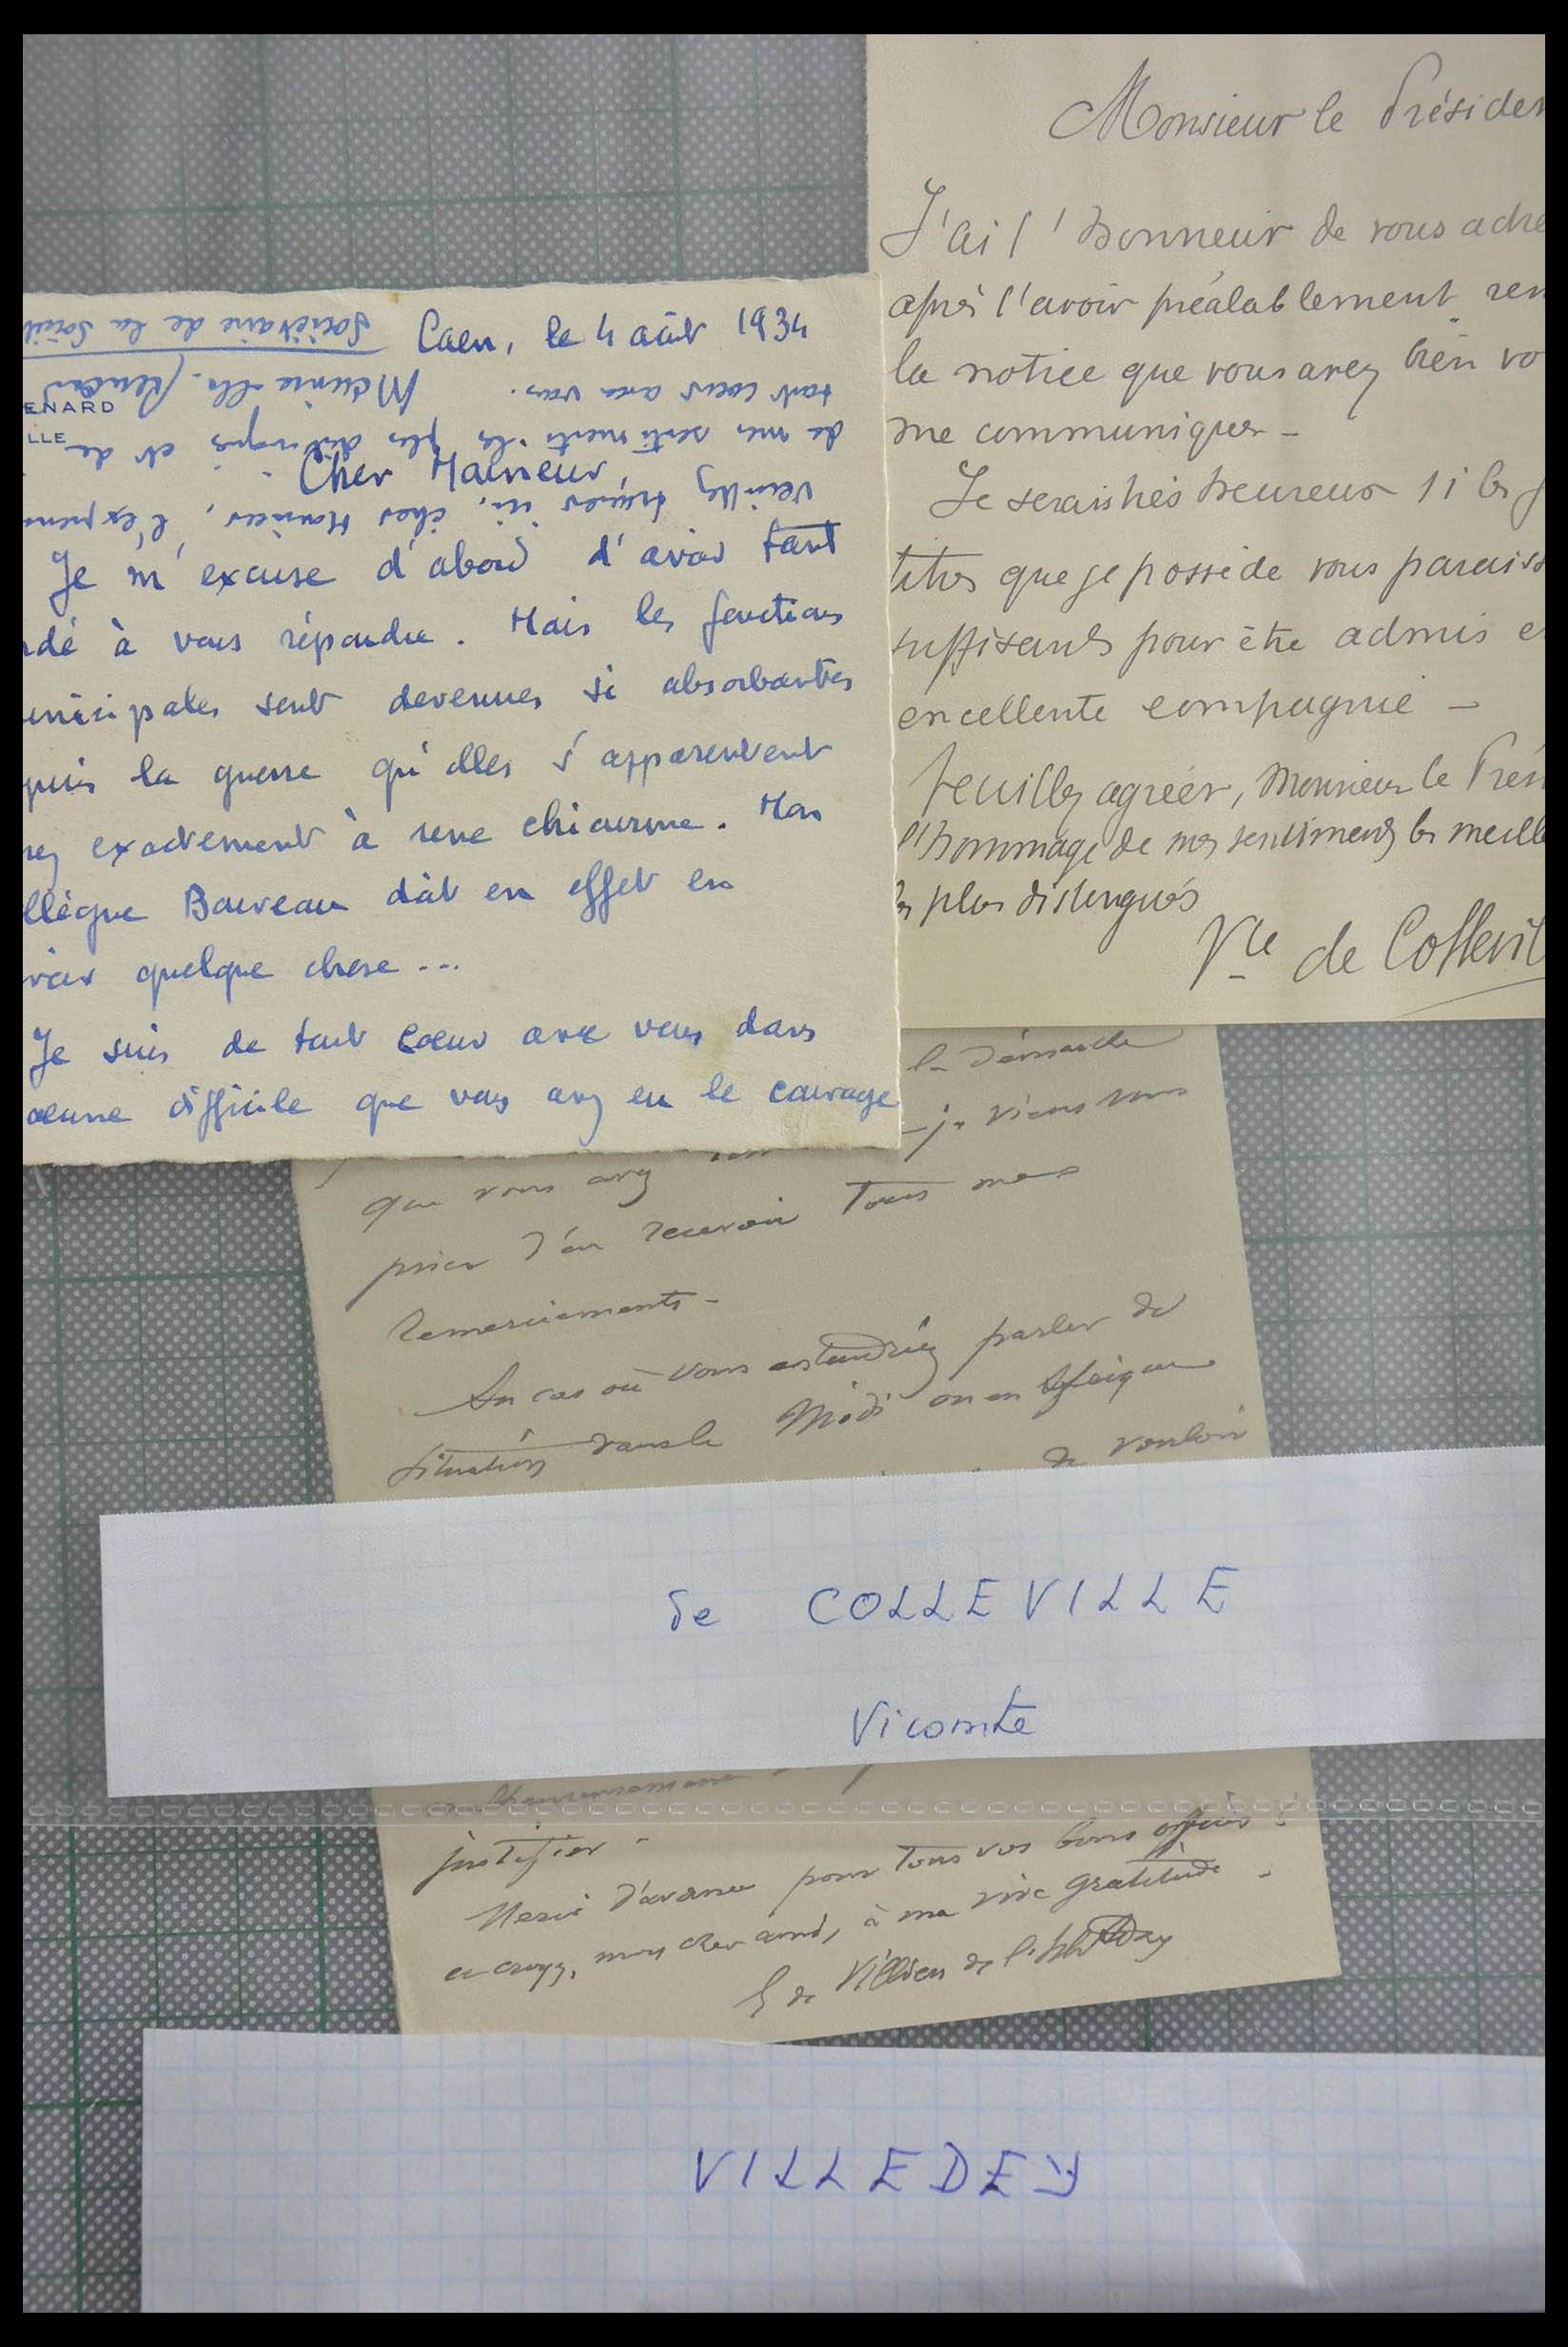 Monsieur le Présiden
J'ai l'honneur de vous adre
après l'avoir préalablement ren
la notice que vous avez bien vo
me communiquer -
Je serais très heureux si les
titres que je possède vous paraiss
suffisants pour être admis e
excellente compagnie -
Veuillez agréer, Monsieur le Prés
l'hommage de mes sentiments les meille
les plus distingués
Vte de Collevil
Caen, le 4 août 1934
Sociétaire de la Socié
ENARD
LLE
Cher Monsieur,
Veuillez trouver ici, cher Monsieur, l'expres
de mes sentiments les plus distingués et de
tout coeur avec vous.
Je m'excuse d'abord d'avoir tant
dé à vous répondre. Mais les fonctions
unicipales sont devenues si absorbantes
puis la guerre qu'elles s'apparentent
ez exactement à une chiourme. Mon
llègue Bauveau doit en effet en
voir quelque chose ...
Je suis de tout coeur avec vous dans
œuvre difficile que vous avez eu le courage
la démarche
que vous avez - je viens vous
prier d'en recevoir tous mes
remerciements -
Au cas où vous entendriez parler de
situations dans le Midi ou en Afrique
de vouloir
de COLLEVILLE
Vicomte
justifier -
Merci d'avance pour tous vos bons offices :
et croyez, mon cher ami, à ma vive gratitude -
VILLEDEY